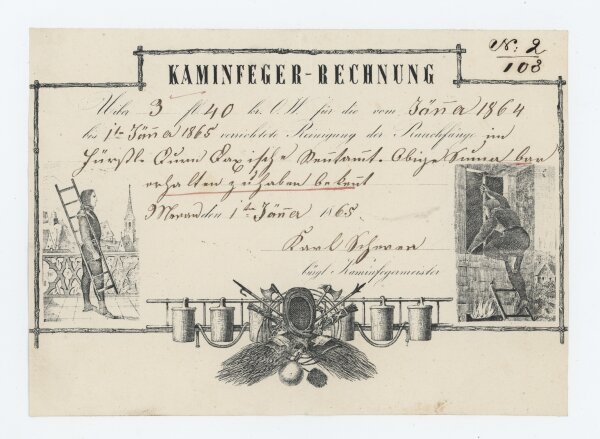 N: 2
108
KAMINFEGER-RECHNUNG
Ueber 3 fl. 40 kr. Ö.W. für die vom Jäña 1864
bis 1ten Jäña 1865 verrichtete Reinigung der Rauchfänge im
Fürstl. Rentamt. Obige Suma bar
erhalten zu haben bekent
Meran den 1ten Jäña 1865.
Karl
bürgl. Kaminfegermeister